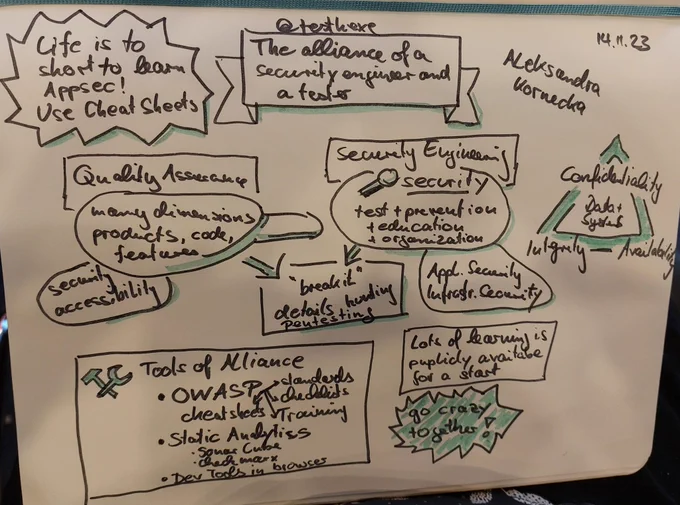 Life is to
short to learn
Appsec!
Use Cheat Sheets
@testhexe
The alliance of a
security engineer and
a tester
14.11.23
Aleksandra
Kornecka
Quality Assurance
many dimensions
products, code,
features
security
accessibility
Security Engineering
security
test + prevention
+ education
+ organization
Appl. Security
Infrastr. Security
"break it"
details hunting
pentesting
Confidentiality
Data +
Systems
Integrity — Availability
Tools of Alliance
• OWASP
standards
checklists
cheatsheets
Training
• Static Analytiss
• Sonar Cube
• checkmarx
• Dev Tools in browser
Lots of learning is
puplicly availabe
for a start
go crazy
together!